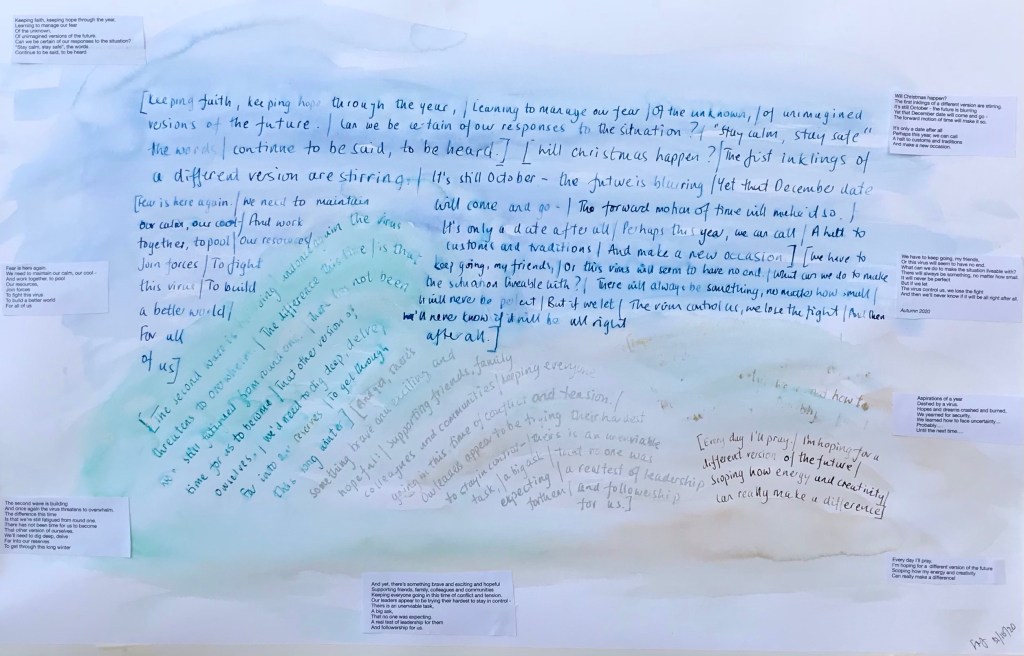 Keeping faith, keeping hope through the year,
Learning to manage our fear
Of the unknown,
Of unimagined versions of the future.
Can we be certain of our responses to the situation?
"Stay calm, stay safe", the words
Continue to be said, to be heard
[Keeping faith, keeping hope through the year, / Learning to manage our fear / Of the unknown, / of unimagined
versions of the future. / Can we be certain of our responses to the situation? / "Stay calm, stay safe"
the words / continue to be said, to be heard.] [Will christmas happen? / The first inklings of
a different version are stirring. / It's still October - the future is blurring / Yet that December date
will come and go - / The forward motion of time will make it so. /
It's only a date after all / Perhaps this year, we can call / A halt to
customs and traditions / And make a new occasion.] [We have to
keep going, my friends, / Or this virus will seem to have no end / What can we do to make
the situation liveable with? / There will always be something, no matter how small /
It will never be perfect / But if we let / The virus control us, we lose the fight / And then
we'll never know if it will be all right
after all.]
[Fear is here again. / We need to maintain
our calm, our cool / And work
together, to pool / Our resources /
Join forces / To fight
this virus / To build
a better world /
For all
of us]
[The second wave is building / And once again the virus
threatens to overwhelm. / The difference this time / is that
we're still fatigued from round one. / There has not been
time for us to become / That other version of
ourselves. / We'd need to dig deep, delve /
Far into our reserves / To get through
This long winter]
something brave and exciting and
hopeful / Supporting friends, family
colleagues and communities / Keeping everyone
going in this time of conflict and tension. /
Our leaders appear to be trying their hardest
to stay in control - / Theirs is an unenviable
task, / A big ask, / That no one was
expecting / a real test of leadership
for them / and followership
for us.]
how to
why
[Every day I'll pray. / I'm hoping for a
different version of the future /
Scoping how energy and creativity /
Can really make a difference]
Will Christmas happen?
The first inklings of a different version are stirring.
It's still October - the future is blurring
Yet that December date will come and go -
The forward motion of time will make it so.
It's only a date after all
Perhaps this year, we can call
A halt to customs and traditions
And make a new occasion.
Fear is here again.
We need to maintain our calm, our cool -
And work together, to pool
Our resources,
Join forces
To fight this virus
To build a better world
For all of us
We have to keep going, my friends,
Or this virus will seem to have no end.
What can we do to make the situation liveable with?
There will always be something, no matter how small.
It will never be perfect
But if we let
The virus control us, we lose the fight
And then we'll never know if it will be all right after all.
Autumn 2020
Aspirations of a year
Dashed by a virus.
Hopes and dreams crashed and burned,
We yearned for security,
We learned how to face uncertainty...
Probably...
Until the next time....
The second wave is building
And once again the virus threatens to overwhelm.
The difference this time
Is that we're still fatigued from round one.
There has not been time for us to become
That other version of ourselves.
We'll need to dig deep, delve
Far into our reserves
To get through this long winter
And yet, there's something brave and exciting and hopeful
Supporting friends, family, colleagues and communities
Keeping everyone going in this time of conflict and tension.
Our leaders appear to be trying their hardest to stay in control -
Theirs is an unenviable task,
A big ask,
That no one was expecting
A real test of leadership for them
And followership for us.
Every day I'll pray.
I'm hoping for a different version of the future
Scoping how my energy and creativity
Can really make a difference!